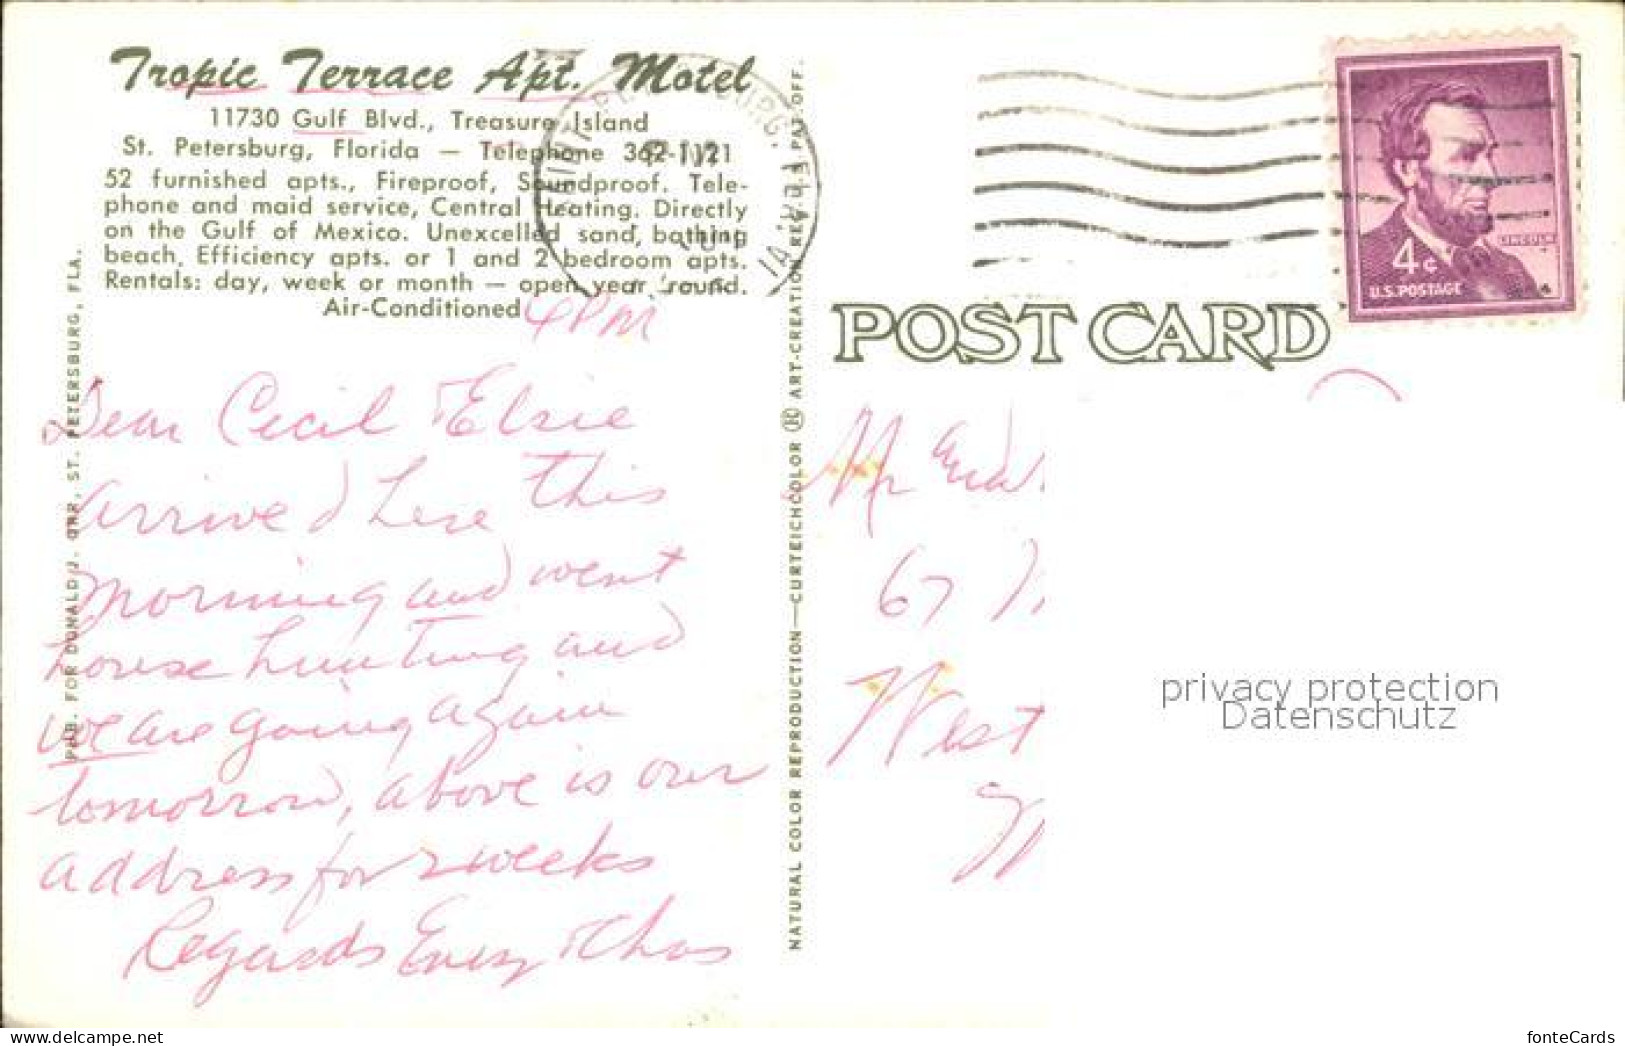 Tropic Terrace Apt. Motel
11730 Gulf Blvd., Treasure Island
St. Petersburg, Florida — Telephone 362-1121
52 furnished apts., Fireproof, Soundproof. Tele-
phone and maid service, Central Heating. Directly
on the Gulf of Mexico. Unexcelled sand, bathing
beach. Efficiency apts. or 1 and 2 bedroom apts.
Rentals: day, week or month — open year 'round.
Air-Conditioned
4 PM
Dear Cecil + Elsie
arrived here this
morning and went
house hunting and
we are going again
tomorrow, above is our
address for 2 weeks
Regards + Chas
PUB. FOR DONALD J. ORR, ST. PETERSBURG, FLA.
NATURAL COLOR REPRODUCTION—CURTEICHCOLOR ® ART-CREATION REV. U.S.A. PAT. OFF.
4¢
U.S. POSTAGE
LINCOLN
POST CARD
Mr and
67
West
privacy protection
Datenschutz
www.delcampe.net
fonteCards